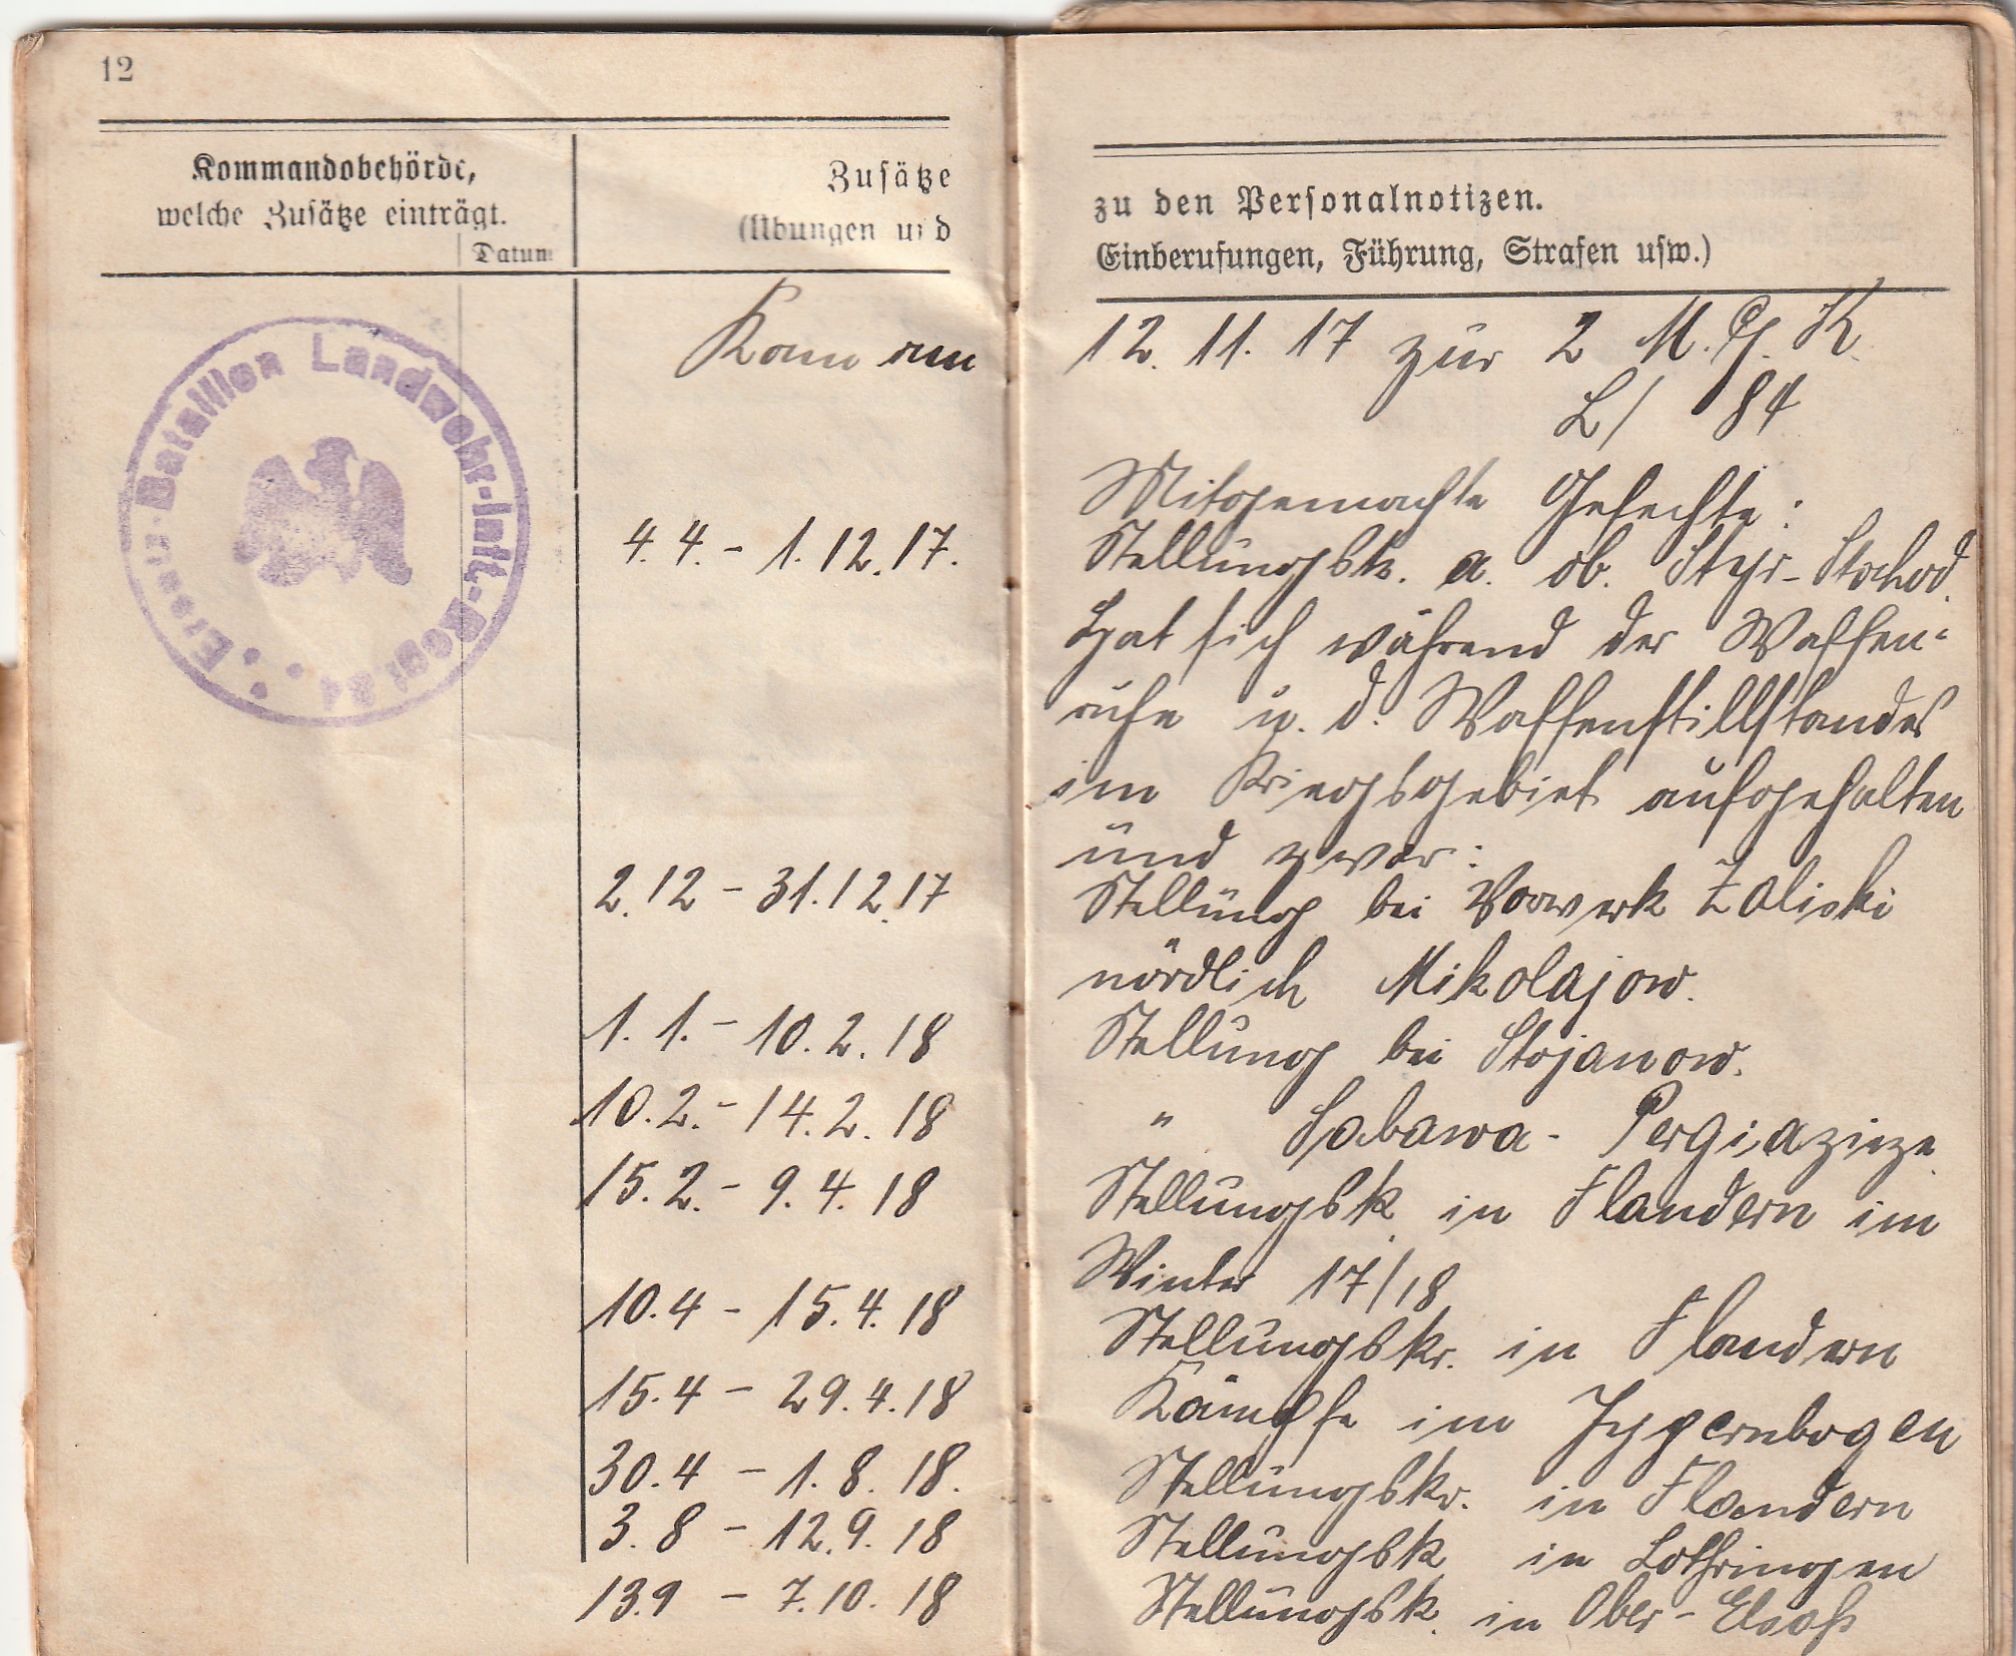 12
Kommandobehörde,
welche Zusätze einträgt.
Datum
Zusätze
(Übungen und
zu den Personalnotizen.
Einberufungen, Führung, Strafen usw.)
Ersatz-Bataillon Landwehr-Inft.-Regt. 84.
Kam am 12. 11. 17 zur 2 M. G. K.
L/ 84
Mitgemachte Gefechte:
4. 4. - 1. 12. 17. Stellungsk. a. ob. Styr-Stochod.
Hat sich während der Waffen-
ruhe u. d. Waffenstillstandes
im Kriegsgebiet aufgehalten
und zwar:
2. 12 - 31. 12. 17 Stellung bei Vorwerk Zaliski
nördlich Mikolajow.
1. 1. - 10. 2. 18 Stellung bei Stojanow.
10. 2. - 14. 2. 18 " Sabawa-
15. 2. - 9. 4. 18 Stellungsk. in Flandern im
Winter 17/18
10. 4 - 15. 4. 18 Stellungskr. in Flandern
15. 4 - 29. 4. 18 Kämpfe im Jypernbogen
30. 4 - 1. 8. 18. Stellungskr. in Flandern
3. 8 - 12. 9. 18 Stellungsk. in Lothringen
13. 9 - 7. 10. 18 Stellungsk. in Ober-Elsaß